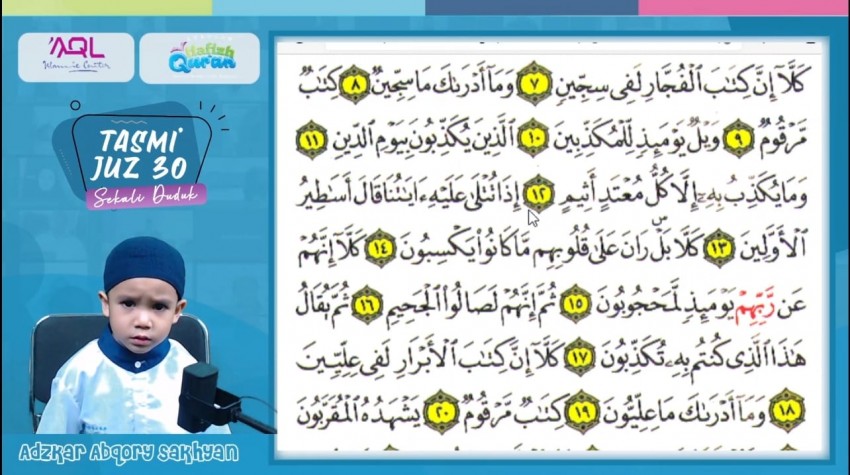 AQL
Islamic Center
Hafizh
Qur'an
TASMI'
JUZ 30
Sekali Duduk
كَلَّآ إِنَّ كِتَٰبَ ٱلْفُجَّارِ لَفِى سِجِّينٍ ٧ وَمَآ أَدْرَىٰكَ مَا سِجِّينٌ ٨ كِتَٰبٌ
مَّرْقُومٌ ٩ وَيْلٌ يَوْمَئِذٍ لِّلْمُكَذِّبِينَ ١٠ ٱلَّذِينَ يُكَذِّبُونَ بِيَوْمِ ٱلدِّينِ ١١
وَمَا يُكَذِّبُ بِهِۦٓ إِلَّا كُلُّ مُعْتَدٍ أَثِيمٍ ١٢ إِذَا تُتْلَىٰ عَلَيْهِ ءَايَٰتُنَا قَالَ أَسَٰطِيرُ
ٱلْأَوَّلِينَ ١٣ كَلَّا بَلْ رَانَ عَلَىٰ قُلُوبِهِم مَّا كَانُوا۟ يَكْسِبُونَ ١٤ كَلَّآ إِنَّهُمْ
عَن رَّبِّهِمْ يَوْمَئِذٍ لَّمَحْجُوبُونَ ١٥ ثُمَّ إِنَّهُمْ لَصَالُوا۟ ٱلْجَحِيمِ ١٦ ثُمَّ يُقَالُ
هَٰذَا ٱلَّذِى كُنتُم بِهِۦ تُكَذِّبُونَ ١٧ كَلَّآ إِنَّ كِتَٰبَ ٱلْأَبْرَارِ لَفِى عِلِّيِّينَ
١٨ وَمَآ أَدْرَىٰكَ مَا عِلِّيُّونَ ١٩ كِتَٰبٌ مَّرْقُومٌ ٢٠ يَشْهَدُهُ ٱلْمُقَرَّبُونَ
Adzkar Abqory Sakhyan